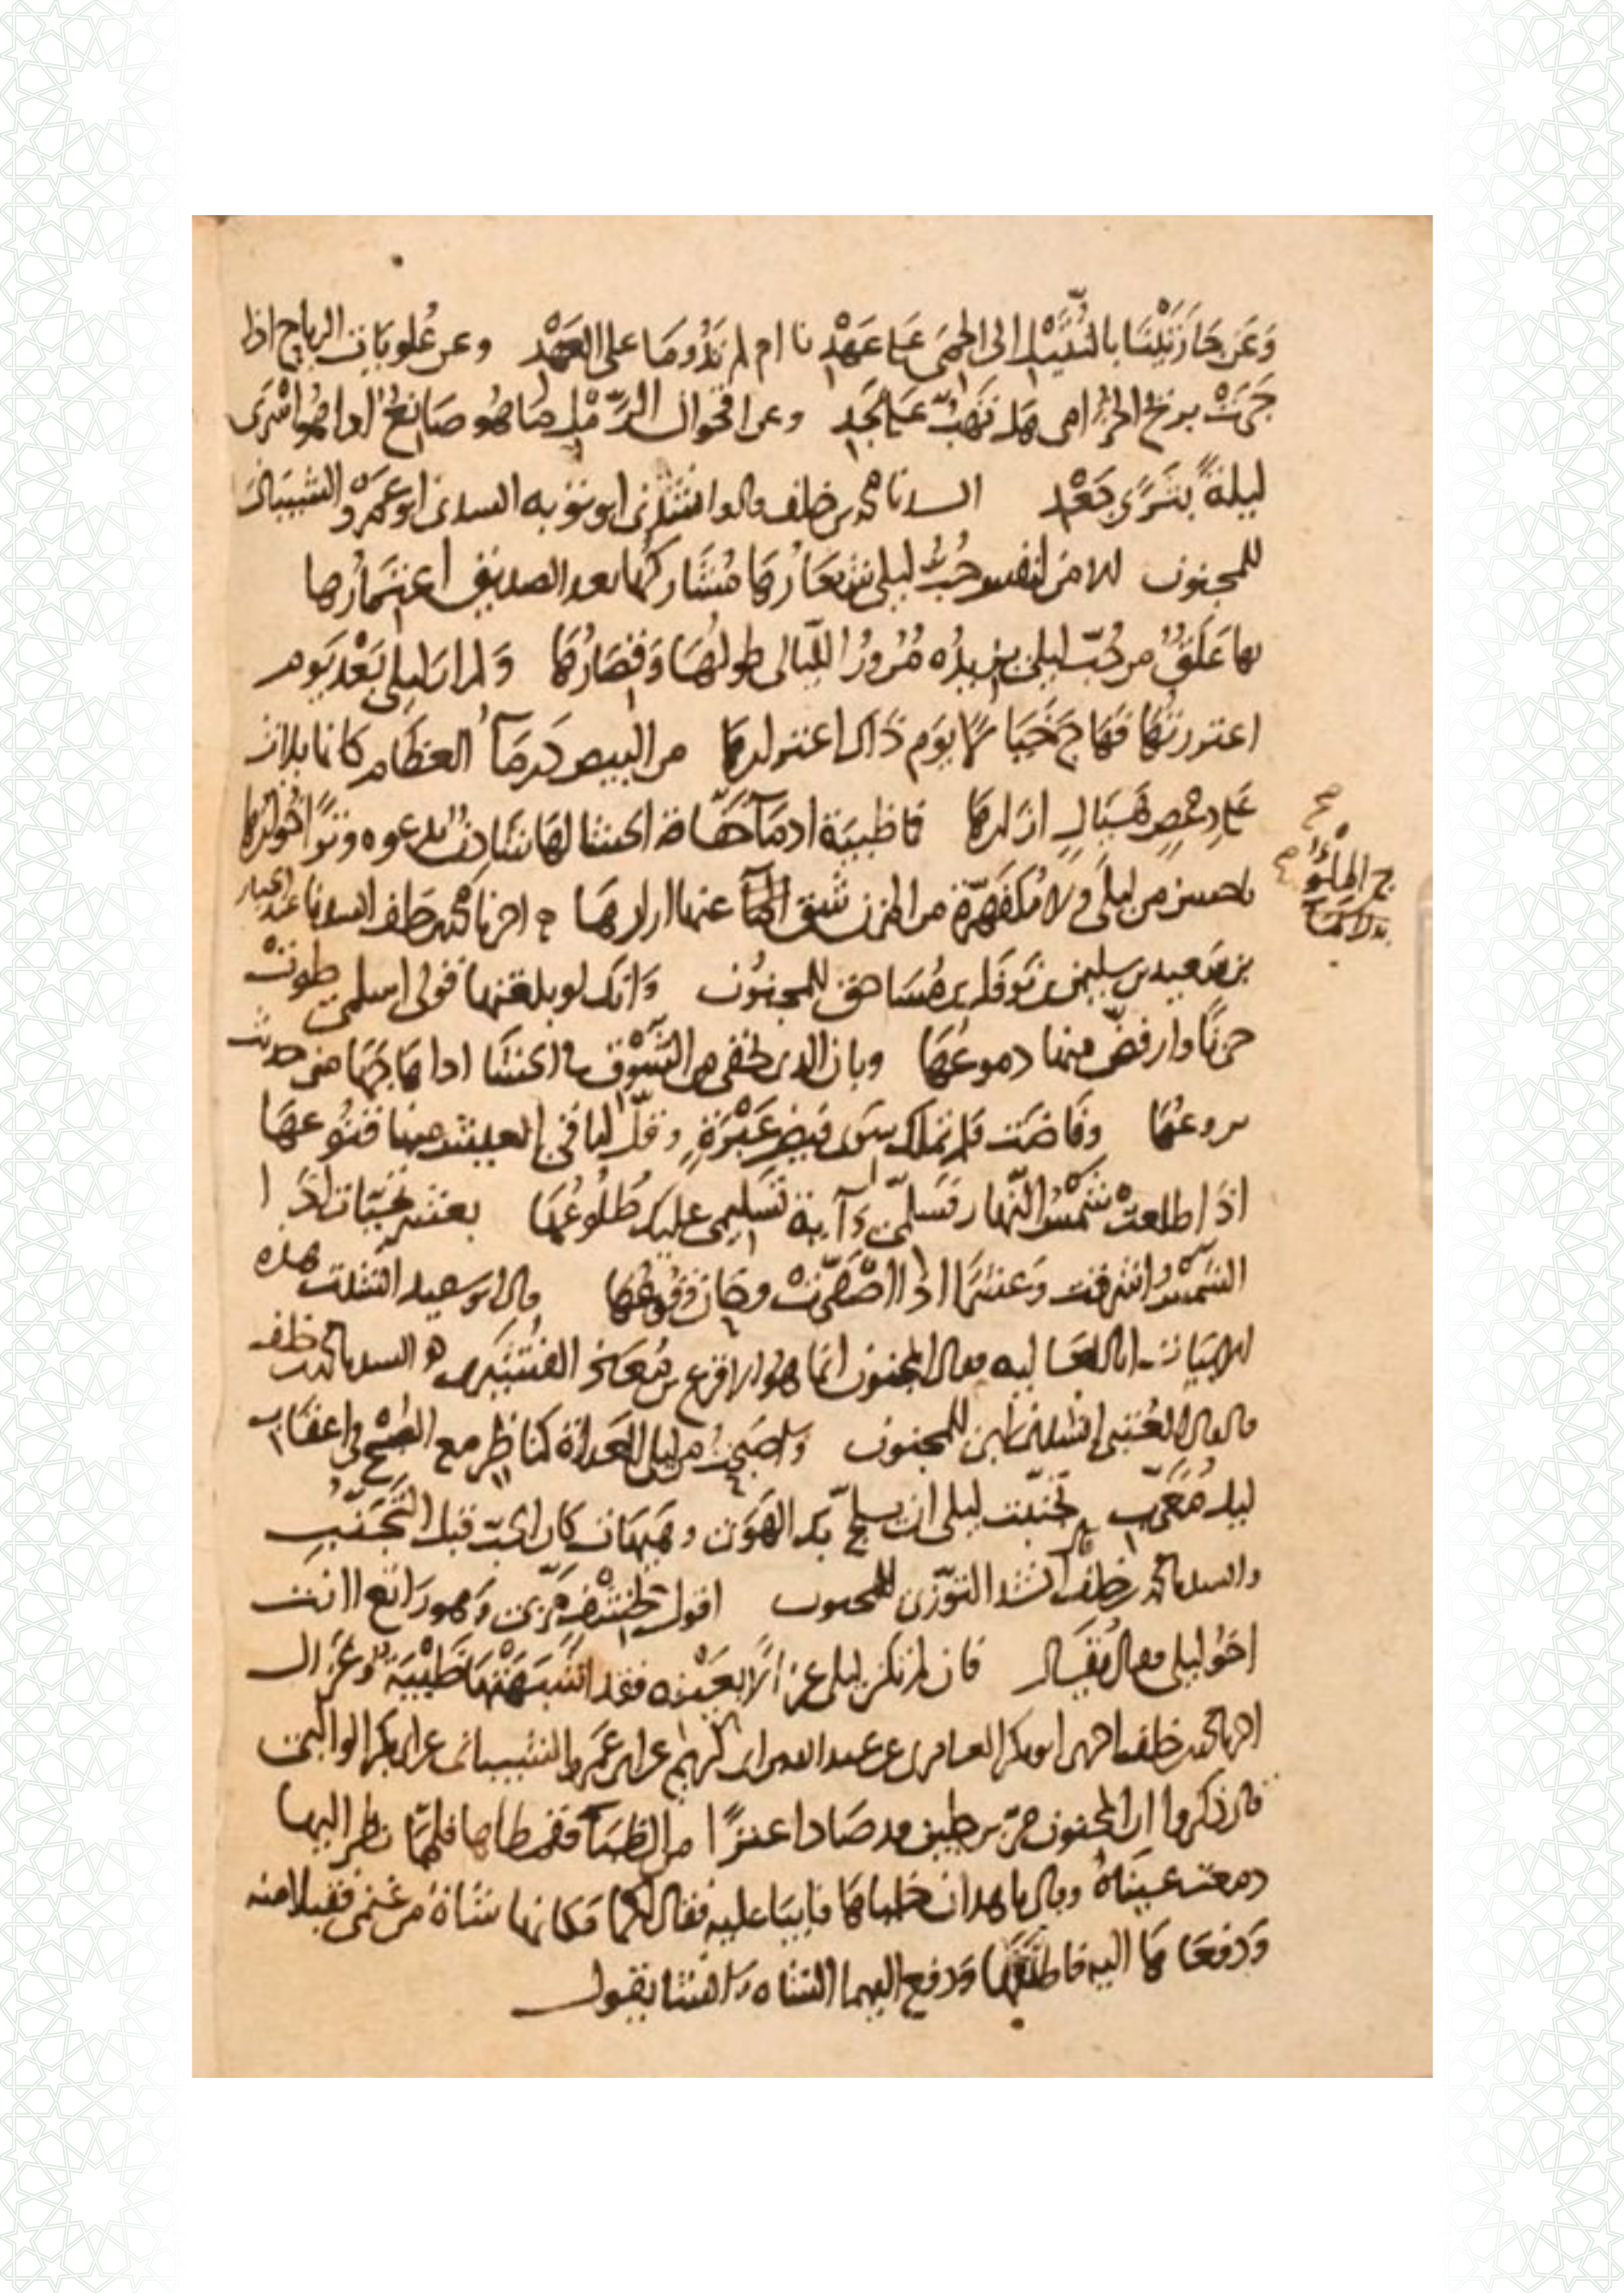 وَعَن جَارَتَيْنَا بالنُّتَيْل الى الحِمَى عَلى عَهْدِنا ام لم تَدُومَا على العَهْدِ وعن عُلويات الرياح اذا
جَرَتْ بريح الخُزامى هل تَهُبّ عَلى نَجدِ وعن اقحوان الرَّمْلِ ما هو صَانِعٌ اذا هو اسْرَى
ليلةً بثَرًى جَعْدِ انشدنا محمد بن خلف قال انشدني ابو توبه انشدني ابو عَمْرو الشيبانيّ
للمجنون الا من لنفس حُبُّ ليلى شِعَارُها مُشَاركُها بعد الصديق اعتمارُها
بها عَلَقٌ من حُبّ ليلى يزيدُه مُرورُ اللّيالى طولُهَا وَقِصَارُهَا وَلم ارَ ليلى بَعْد يَوم
اعتورتُها فهَاج خَبَالًا يَوم ذَاكَ اعتوارُهَا من البيض كَومَآءُ العظام كانما يلاث
عَلى دِعْصٍ هَيَالٍ ازارهَا فما ظبية ادمَآءُ خفّاقة الحشا لها شَادنٌ يدعوه وترًا خُوارُها
باحسن من ليلَى ولا مُكْفَهِرّة من المزن شق الما عنها ازارهَا اخبرنا محمد بن خلف انشدنا عبد الجبار
بن سعيد بن سليمن بن نَوفَل بن مُسَاحق للمجنُون وَانك لو بلغتها قولى اسلمي طوتْ
حزنًا وارفضّ منها دموعُهَا وبان الذي تخفي من الشَّوْق في الحشَا اذا هَاجَهَا مني حديث
يروعُهَا وفَاضَت فلم تملك سوى فيض عَبْرَةٍ وقلّ لباقي العيش منها قنُوعهَا
اذَا طلعتْ شَمْسُ النّهَار فسَلّمي وآية تسليمي عليك طُلُوعُهَا بعشر تحيّات اذا
الشمْسُ اشرقت وَعشر اذا اصْفَرّتْ وحَان وقُوعُهَا قال ابو سعيد انشدت هذه
الابيات ابا العَالِيه فقال المجنون انما هو الاقرع بن مُعَاذ القُشَيْرى انشدنا محمد بن خلف
قال قال العُتبى انشدنا ابن للمجنون وَاصبَحتُ من ليلى الغَداةَ كناظِر مع الصُبْح في اعقَاب
ليلٍ مُغَرّبِ تجنّبت ليلى ان يلجّ بك الهَوى وهَيهَات كان الحب قبل التَّجَنّبِ
وانشدنا محمد بن خلف انشد التوّزى للمجنون اقول لخشْفٍ مَرّ بي وهو رَاتع اانت
اخُو ليلى فقال يُقَال فان لم تكن ليلى غزالًا بعَيْنِه فقد اشْبَهَتْهَا ظَبْيَةٌ وغزال
اخبرنا محمد بن خلف اخبرني ابو بكر العامرى عن عبد الله بن ابى كريم عن ابى عَمرو الشيبانى عن ابى بكر الوالبى
قال ذكروا ان المجنون مرّ برجلين قد صَادا عنزًا من الظبَآء فربطاها فلمّا نظر اليها
دمعت عينَاهُ وقال يا هذان خلياها فابيَا عليه فقال لكما مَكانها شَاةٌ من غنمى فقبلا منه
وَدفعَاهَا اليه فاطلقَهَا وَدفع اليهما الشاه وانشا يقول